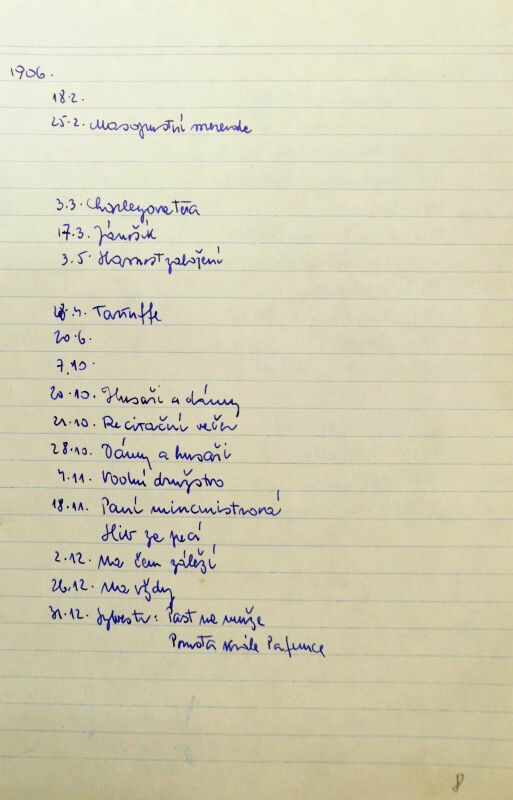 1906.
18.2.
25.2. Masopustní merenda
3.3. Charleyova teta
17.3. Jánošík
3.5. Slavnost založení
28.4. Tartuffe
20.6.
7.10.
20.10. Husaři a dámy
21.10. Recitační večer
28.10. Dámy a husaři
4.11. Vodní družstvo
18.11. Paní mincmistrová
za pecí
2.12. Na čem záleží
26.12. Na vždy
31.12. Sylvestr: Past na muže
krále
8